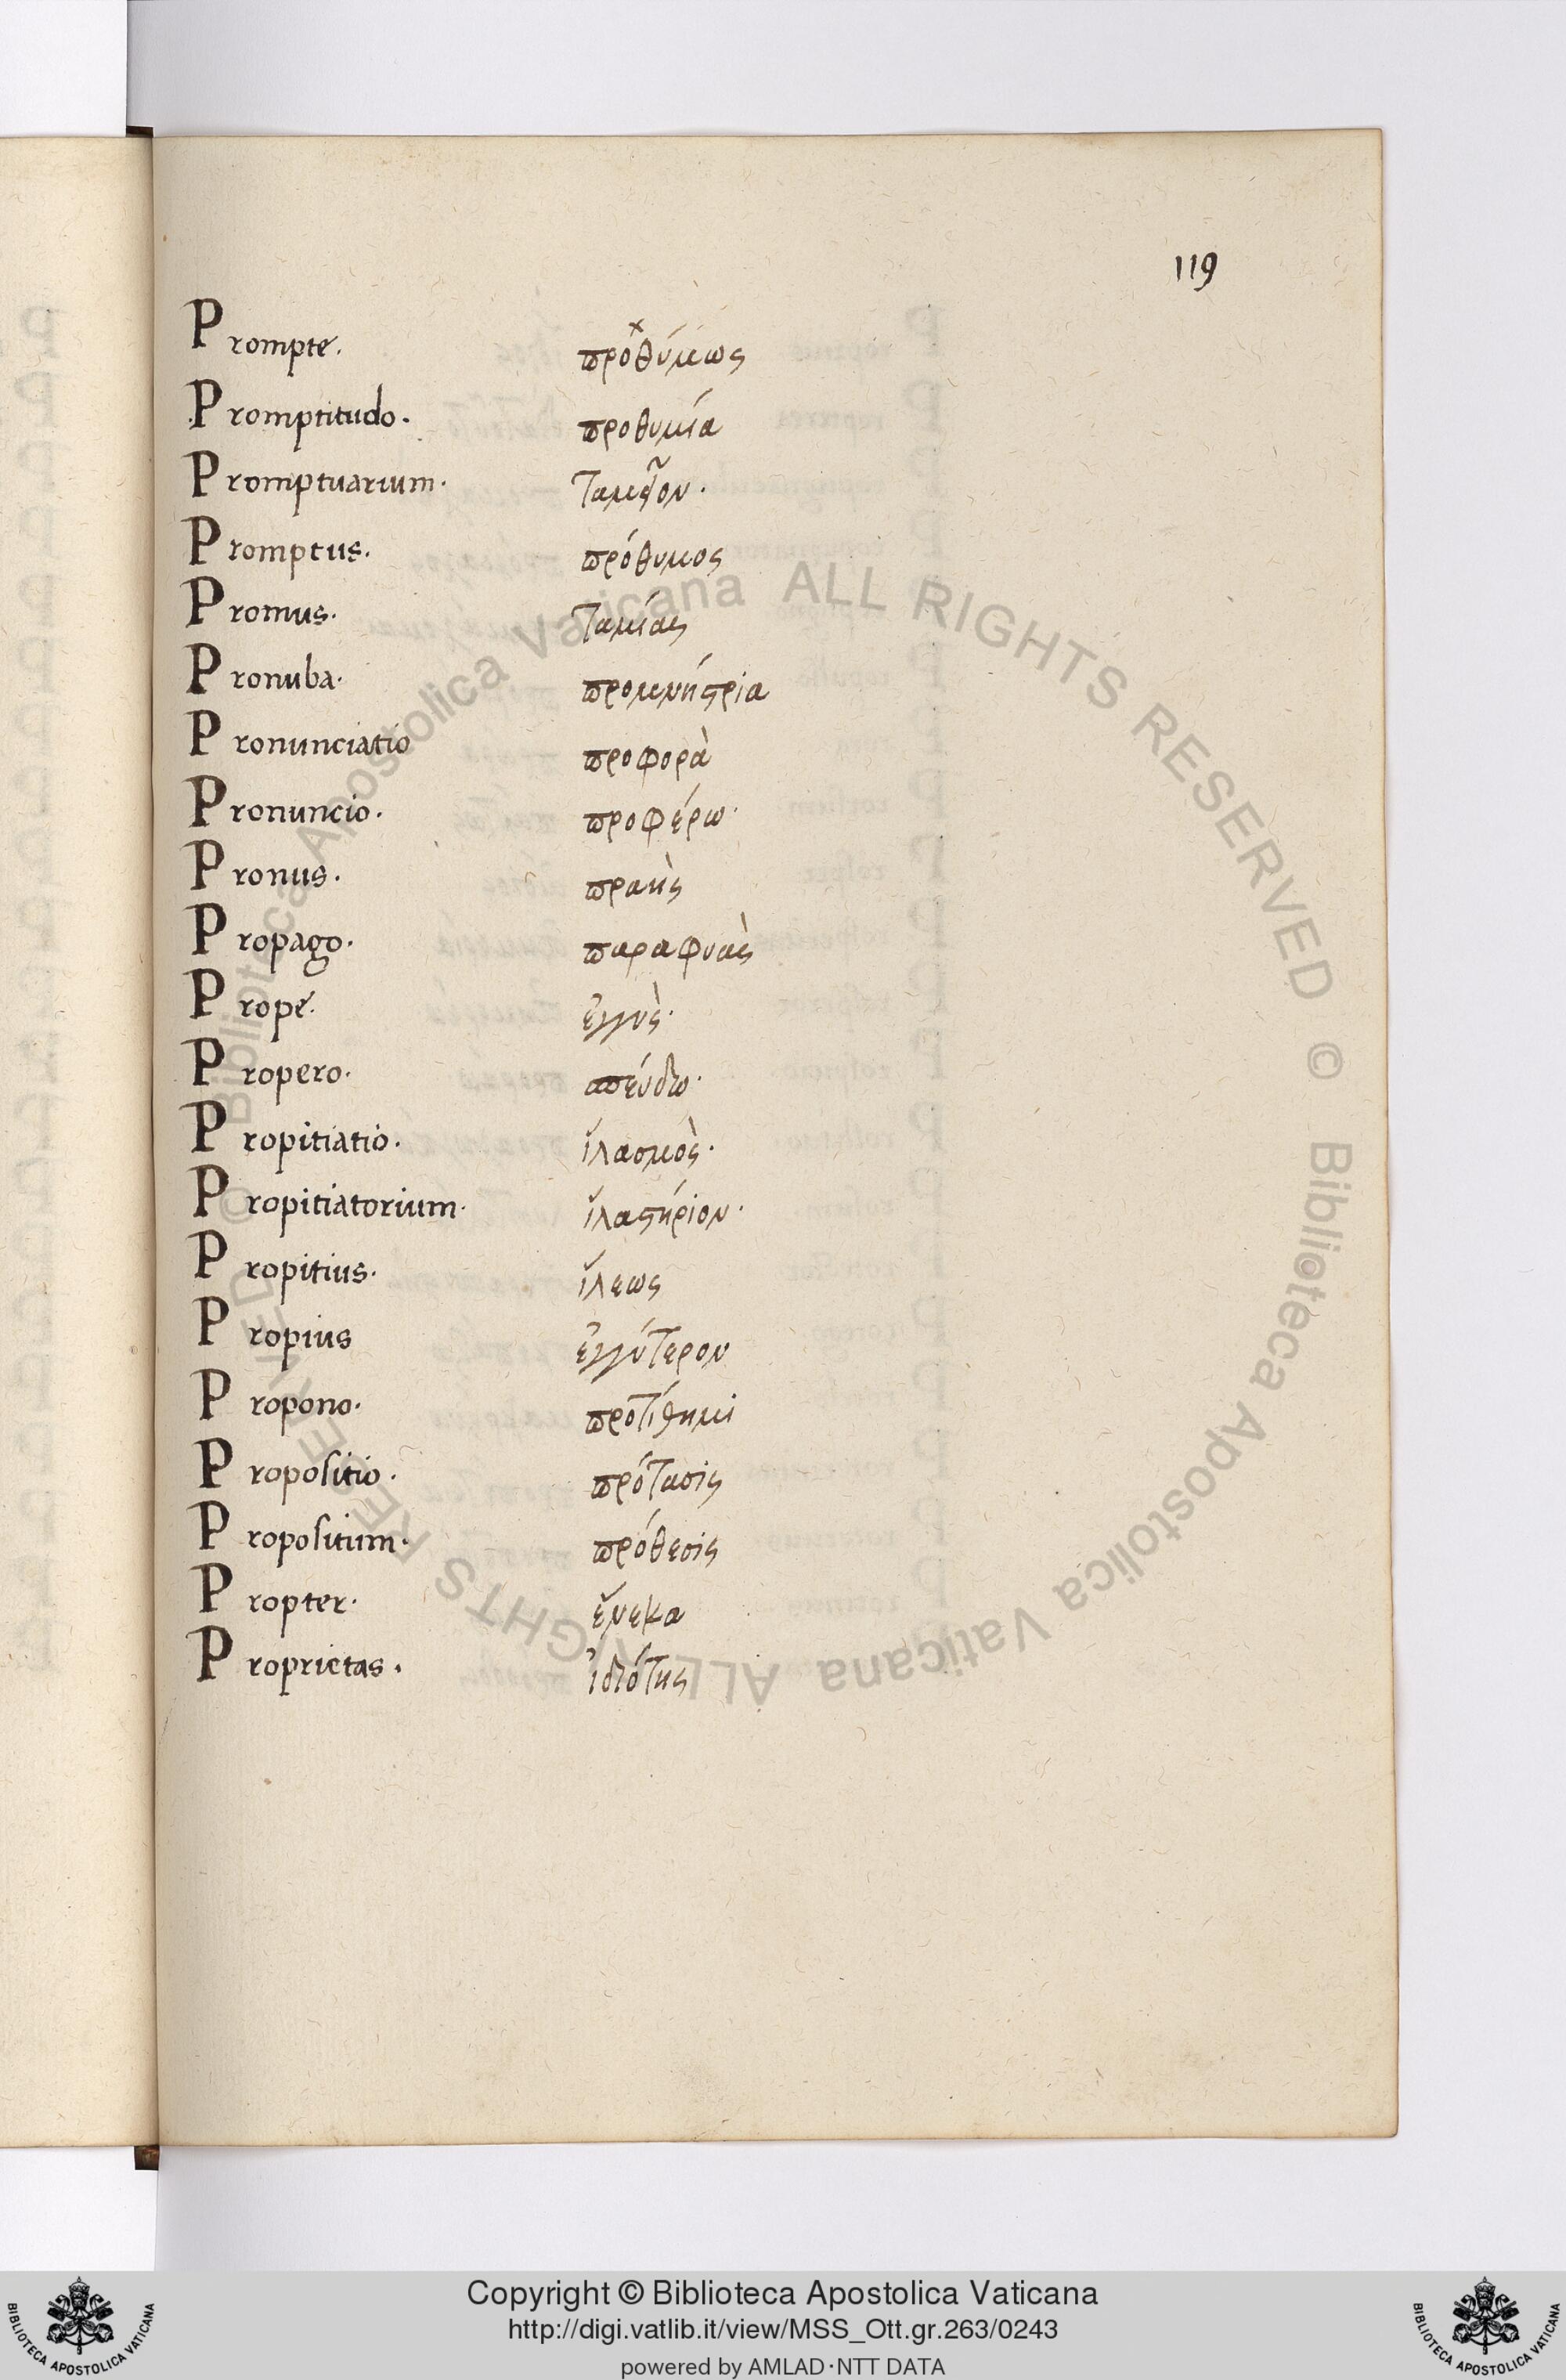 119
Prompte. προθύμως
Promptitudo. προθυμία
Promptuarium. ταμεῖον.
Promptus. πρόθυμος
Promus. ταμίας
Pronuba. προμνήστρια
Pronunciatio προφορὰ
Pronuncio. προφέρω.
Pronus. πρανὴς
Propago. παραφυὰς
Prope. ἐγγὺς.
Propero. σπεύδω.
Propitiatio. ἱλασμὸς.
Propitiatorium. ἱλαστήριον.
Propitius. ἵλεως
Propius ἐγγύτερον
Propono. προτίθημι
Propositio. πρότασις
Propositum. πρόθεσις
Propter. ἕνεκα
Proprietas. ἰδιότης
© Biblioteca Apostolica Vaticana ALL RIGHTS RESERVED © Biblioteca Apostolica Vaticana ALL RIGHTS RESERVED
Copyright © Biblioteca Apostolica Vaticana
http://digi.vatlib.it/view/MSS_Ott.gr.263/0243
powered by AMLAD·NTT DATA
BIBLIOTECA APOSTOLICA VATICANA
BIBLIOTECA APOSTOLICA VATICANA